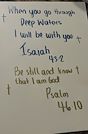 When you go through
Deep Waters
I will be with you
Isaiah
43:2
Be still and know
that I am God
Psalm
46:10